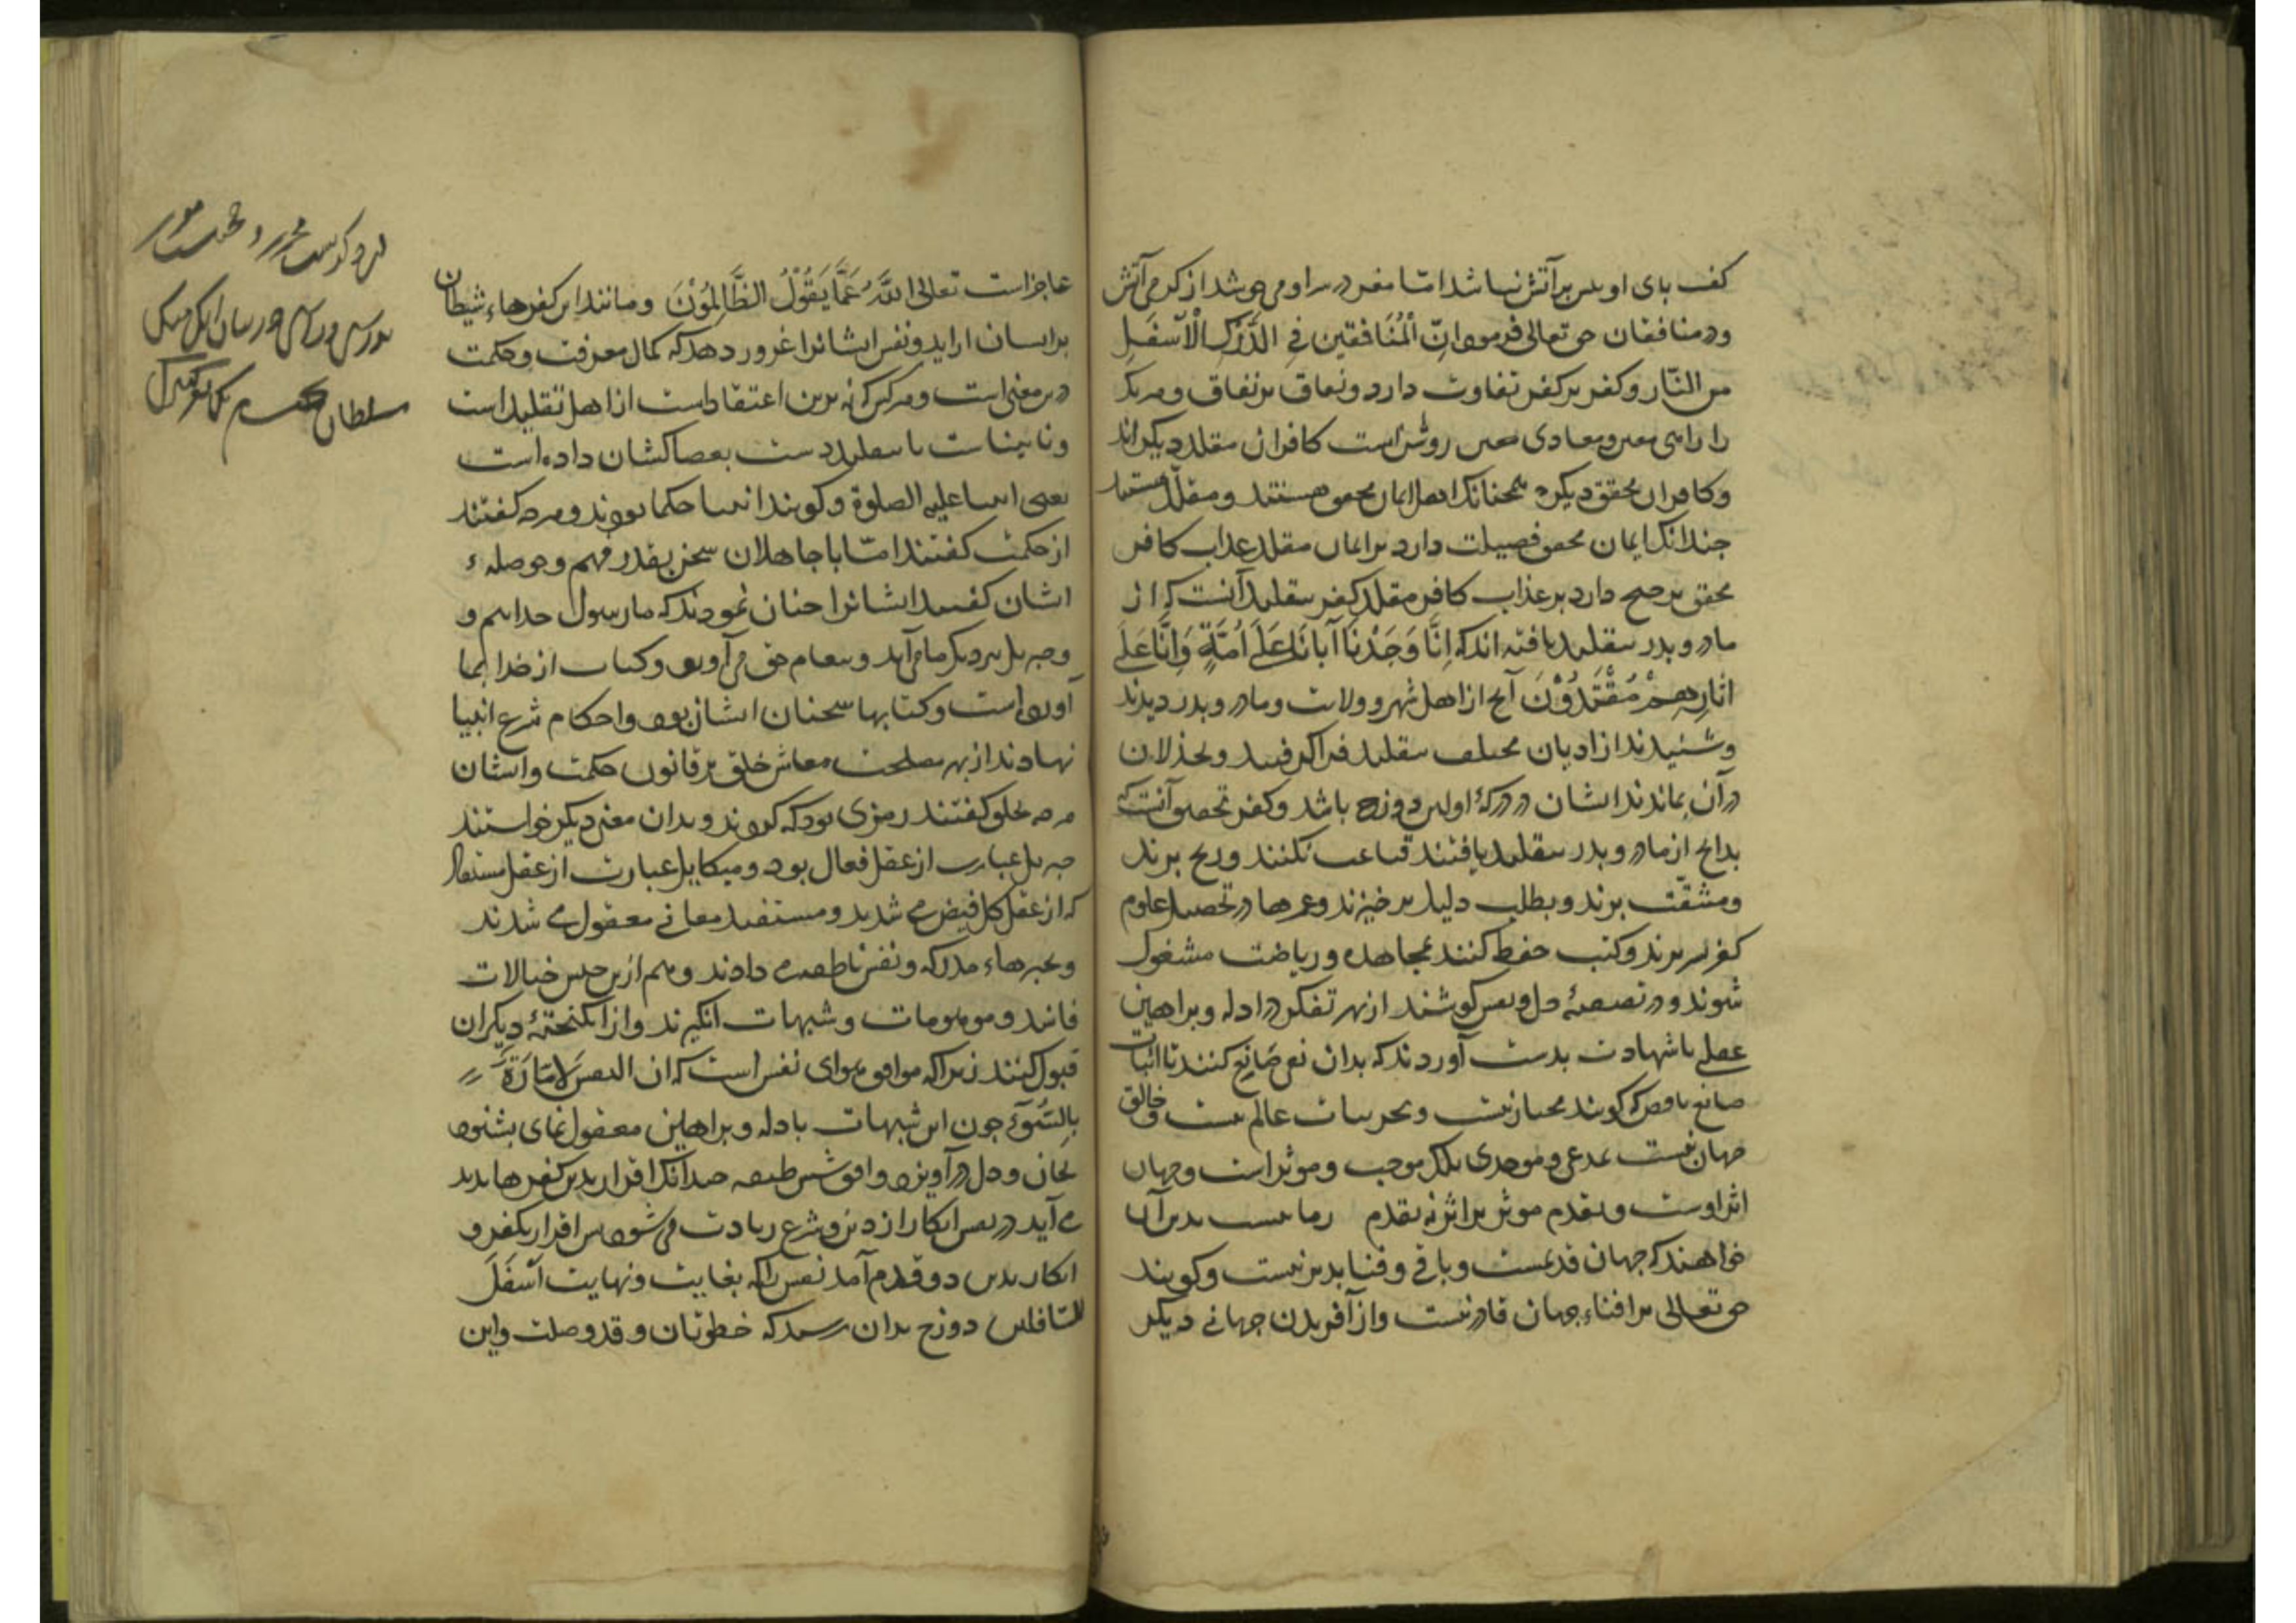 کف پای او بدین بر آتش نباشد امّا مغز در سر او می جوشد از گرمی آتش
و در منافقان حق تعالی فرمود اِنّ الْمُنَافقین فِی الدَّرْکِ الْاَسْفَلِ
من النّار و کفر بر کفر تفاوت دارد و نفاق بر نفاق و هر یک
را راهی معین و معادی معین روشن است کافران مقلد دیگراند
و کافران محقق دیگر همچنانک اهل ایمان محقق هستند و مقلّد هستند
چندانک ایمان محقق فضیلت دارد بر ایمان مقلد عذاب کافر
محقق ترجیح دارد بر عذاب کافر مقلد کفر بتقلید آنست که از
مادر و پدر بتقلید یافته اند که اِنَّا وَجَدْنَا آبَائَنَا عَلَی اُمَّةٍ وَاِنَّا عَلَی
اثَارِهِمْ مُقْتَدُوْنَ آنچ از اهل شهر و ولایت و مادر و پدر دیدند
و شنیدند از ادیان مختلف بتقلید فرا گرفتند و بخذلان
در آن بماندند ایشان در درکهٔ اولین دوزخ باشد و کفر تحقیق آنست که
بدانچ از مادر و پدر بتقلید یافتند قناعت نکنند و رنج برند
و مشقّت برند و بطلب دلیل برخیزند و عمرها در تحصیل علوم
کفر بسر برند و کتب حفظ کنند بمجاهده و ریاضت مشغول
شوند و در تصفیهٔ دل و نفس کوشند از بهر تفکر در ادله و براهین
عقلی با شهادت بدست آوردند که بدان نفی صانع کنند تا اثبات
صانع ناقص که گویند مختار نیست و بجزییات عالم نیست و خالق
جهان نیست بمدعی و موجدی بلک موجب و موثر است و جهان
اثر اوست و تقدم موثر بر اثر نه تقدم زمانیست بدین آن
خواهند که جهان قدیمست و باقی و فنا پذیر نیست و گویند
حق تعالی بر افناء جهان قادر نیست و از آفریدن جهانی دیگر
عاجز است تعالی اللّهُ عَمَّا یَقُوْلُ الظَّالِمُوْنَ و مانند این کفرهاء شیطان
بر ایشان اراید و نفس ایشانرا غرور دهد که کمال معرفت و حکمت
درین معنی است و هر کس که نه برین اعتقاد است از اهل تقلید است
و نابیناست تا بتقلید دست بعصاکشان داده است
یعنی انبیا علیه الصلوة و گویند انبیا حکما بودند و هرچه گفتند
از حکمت گفتند امّا با جاهلان سخن بقدر فهم و حوصلهء
ایشان گفتند ایشانرا چنان نمودند که ما رسول خداییم و
و جبریل نزدیک ما می آید و پیغام حق می آورد و کتاب از خدا بما
آورده است و کتابها سخنان ایشان بود و احکام شرع انبیا
نهادند از بهر مصلحت معاش خلق بر قانون حکمت و ایشان
هرچه بخلق گفتند رمزی بود که کردند و بدان معنی دیگر خواستند
جبریل عبارت از عقل فعال بود و میکاییل عبارت از عقل مستفاد
که از عقل کل فیض می شدند و مستفید معانی معقول می شدند
و بخبرهاء مدرکه و نفس ناطقه می دادند و هم ازین جنس خیالات
فاسد و موهومات و شبهات انگیزند و از انگیختهٔ دیگران
قبول کنند زیراکه موافق هوای نفس است که ان النفس لَامّارَةٌ
بِالسُّوْٓءِ چون این شبهات با دله و براهین معقول نمای بشنود
بجان و دل در آویزد وافق شن طبقه چندانک اقرار بدین کفرها پدید
می آید در نفس انکار از دین و شرع زیادت می شود پس اقرار بکفر و
انکار بدین دو قدم آمد نفس را که بغایت و نهایت اَسْفَلَ
السّافلین دوزخ بدان رسد که خطوتان و قد وصلت و این